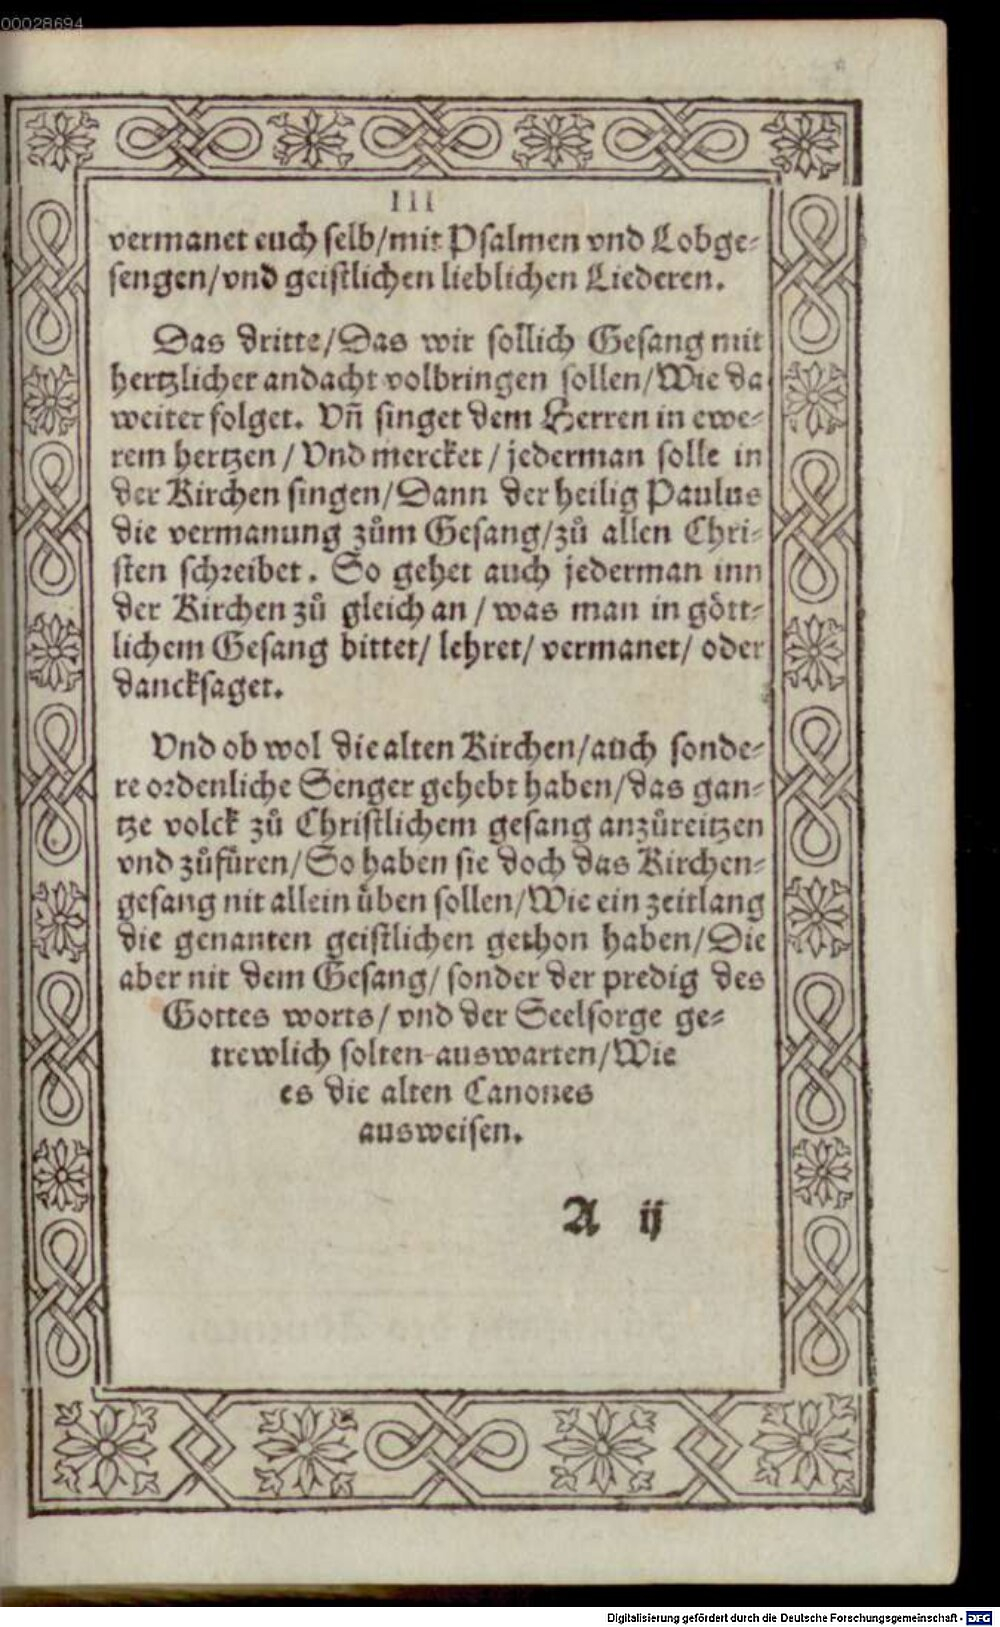 00028694
III
vermanet euch selb/mit Psalmen vnd Lobge-
sengen/vnd geistlichen lieblichen Liederen.
Das dritte/Das wir sollich Gesang mit
hertzlicher andacht volbringen sollen/Wie da
weiter folget. Vñ singet dem Herren in ewe-
rem hertzen/Vnd mercket/jederman solle in
der Kirchen singen/Dann der heilig Paulus
die vermanung zům Gesang/zů allen Chri-
sten schreibet. So gehet auch jederman inn
der Kirchen zů gleich an/was man in gött-
lichem Gesang bittet/lehret/vermanet/oder
dancksaget.
Vnd ob wol die alten Kirchen/auch sonde-
re ordenliche Senger gehebt haben/das gan-
tze volck zů Christlichem gesang anzůreitzen
vnd zůfüren/So haben sie doch das Kirchen-
gesang nit allein üben sollen/Wie ein zeitlang
die genanten geistlichen gethon haben/Die
aber nit dem Gesang/sonder der predig des
Gottes worts/vnd der Seelsorge ge-
trewlich solten auswarten/Wie
es die alten Canones
ausweisen.
A ij
Digitalisierung gefördert durch die Deutsche Forschungsgemeinschaft - DFG